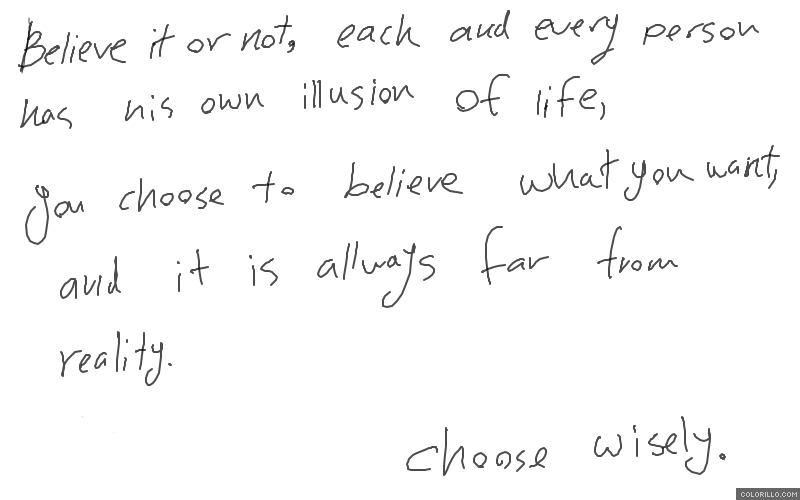 Believe it or not, each and every person
has his own illusion of life,
you choose to believe what you want,
and it is allways far from
reality.
choose wisely.
COLORILLO.COM